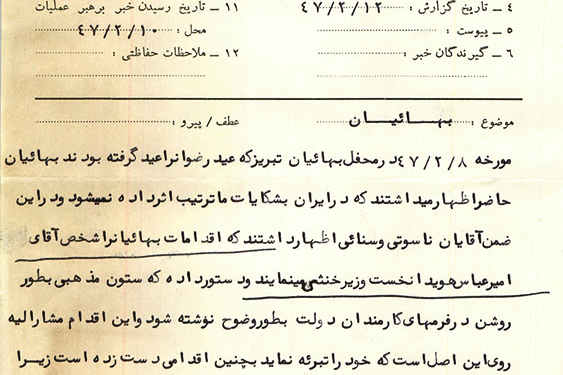 ۴ ــ تاریخ گزارش : ۴۷/۲/۱۲
۵ ــ پیوست :
۶ ــ گیرندگان خبر :
۱۱ ــ تاریخ رسیدن خبر برهبر عملیات
محل : ۴۷/۲/۱۰
۱۲ ــ ملاحظات حفاظتی :
موضوع : بهـائیـان
عطف / پیرو :
مورخه ۴۷/۲/۸ درمحفل بهائیان تبریز که عید رضوانراعید گرفته بودند بهائیان
حاضراظهارمیداشتند که درایران بشکایات ماترتیب اثرداده نمیشود ودراین
ضمن آقایان ناسوتی وسنائی اظهارداشتند که اقدامات بهائیانراشخص آقای
امیرعباس هویدا نخست وزیرخنثی مینمایند ودستورداده که ستون مذهبی بطور
روشن درفرمهای کارمندان دولت بطوروضوح نوشته شود واین اقدام مشارالیه
روی این اصل است که خود راتبرئه نماید بچنین اقدامی دست زده است زیـرا